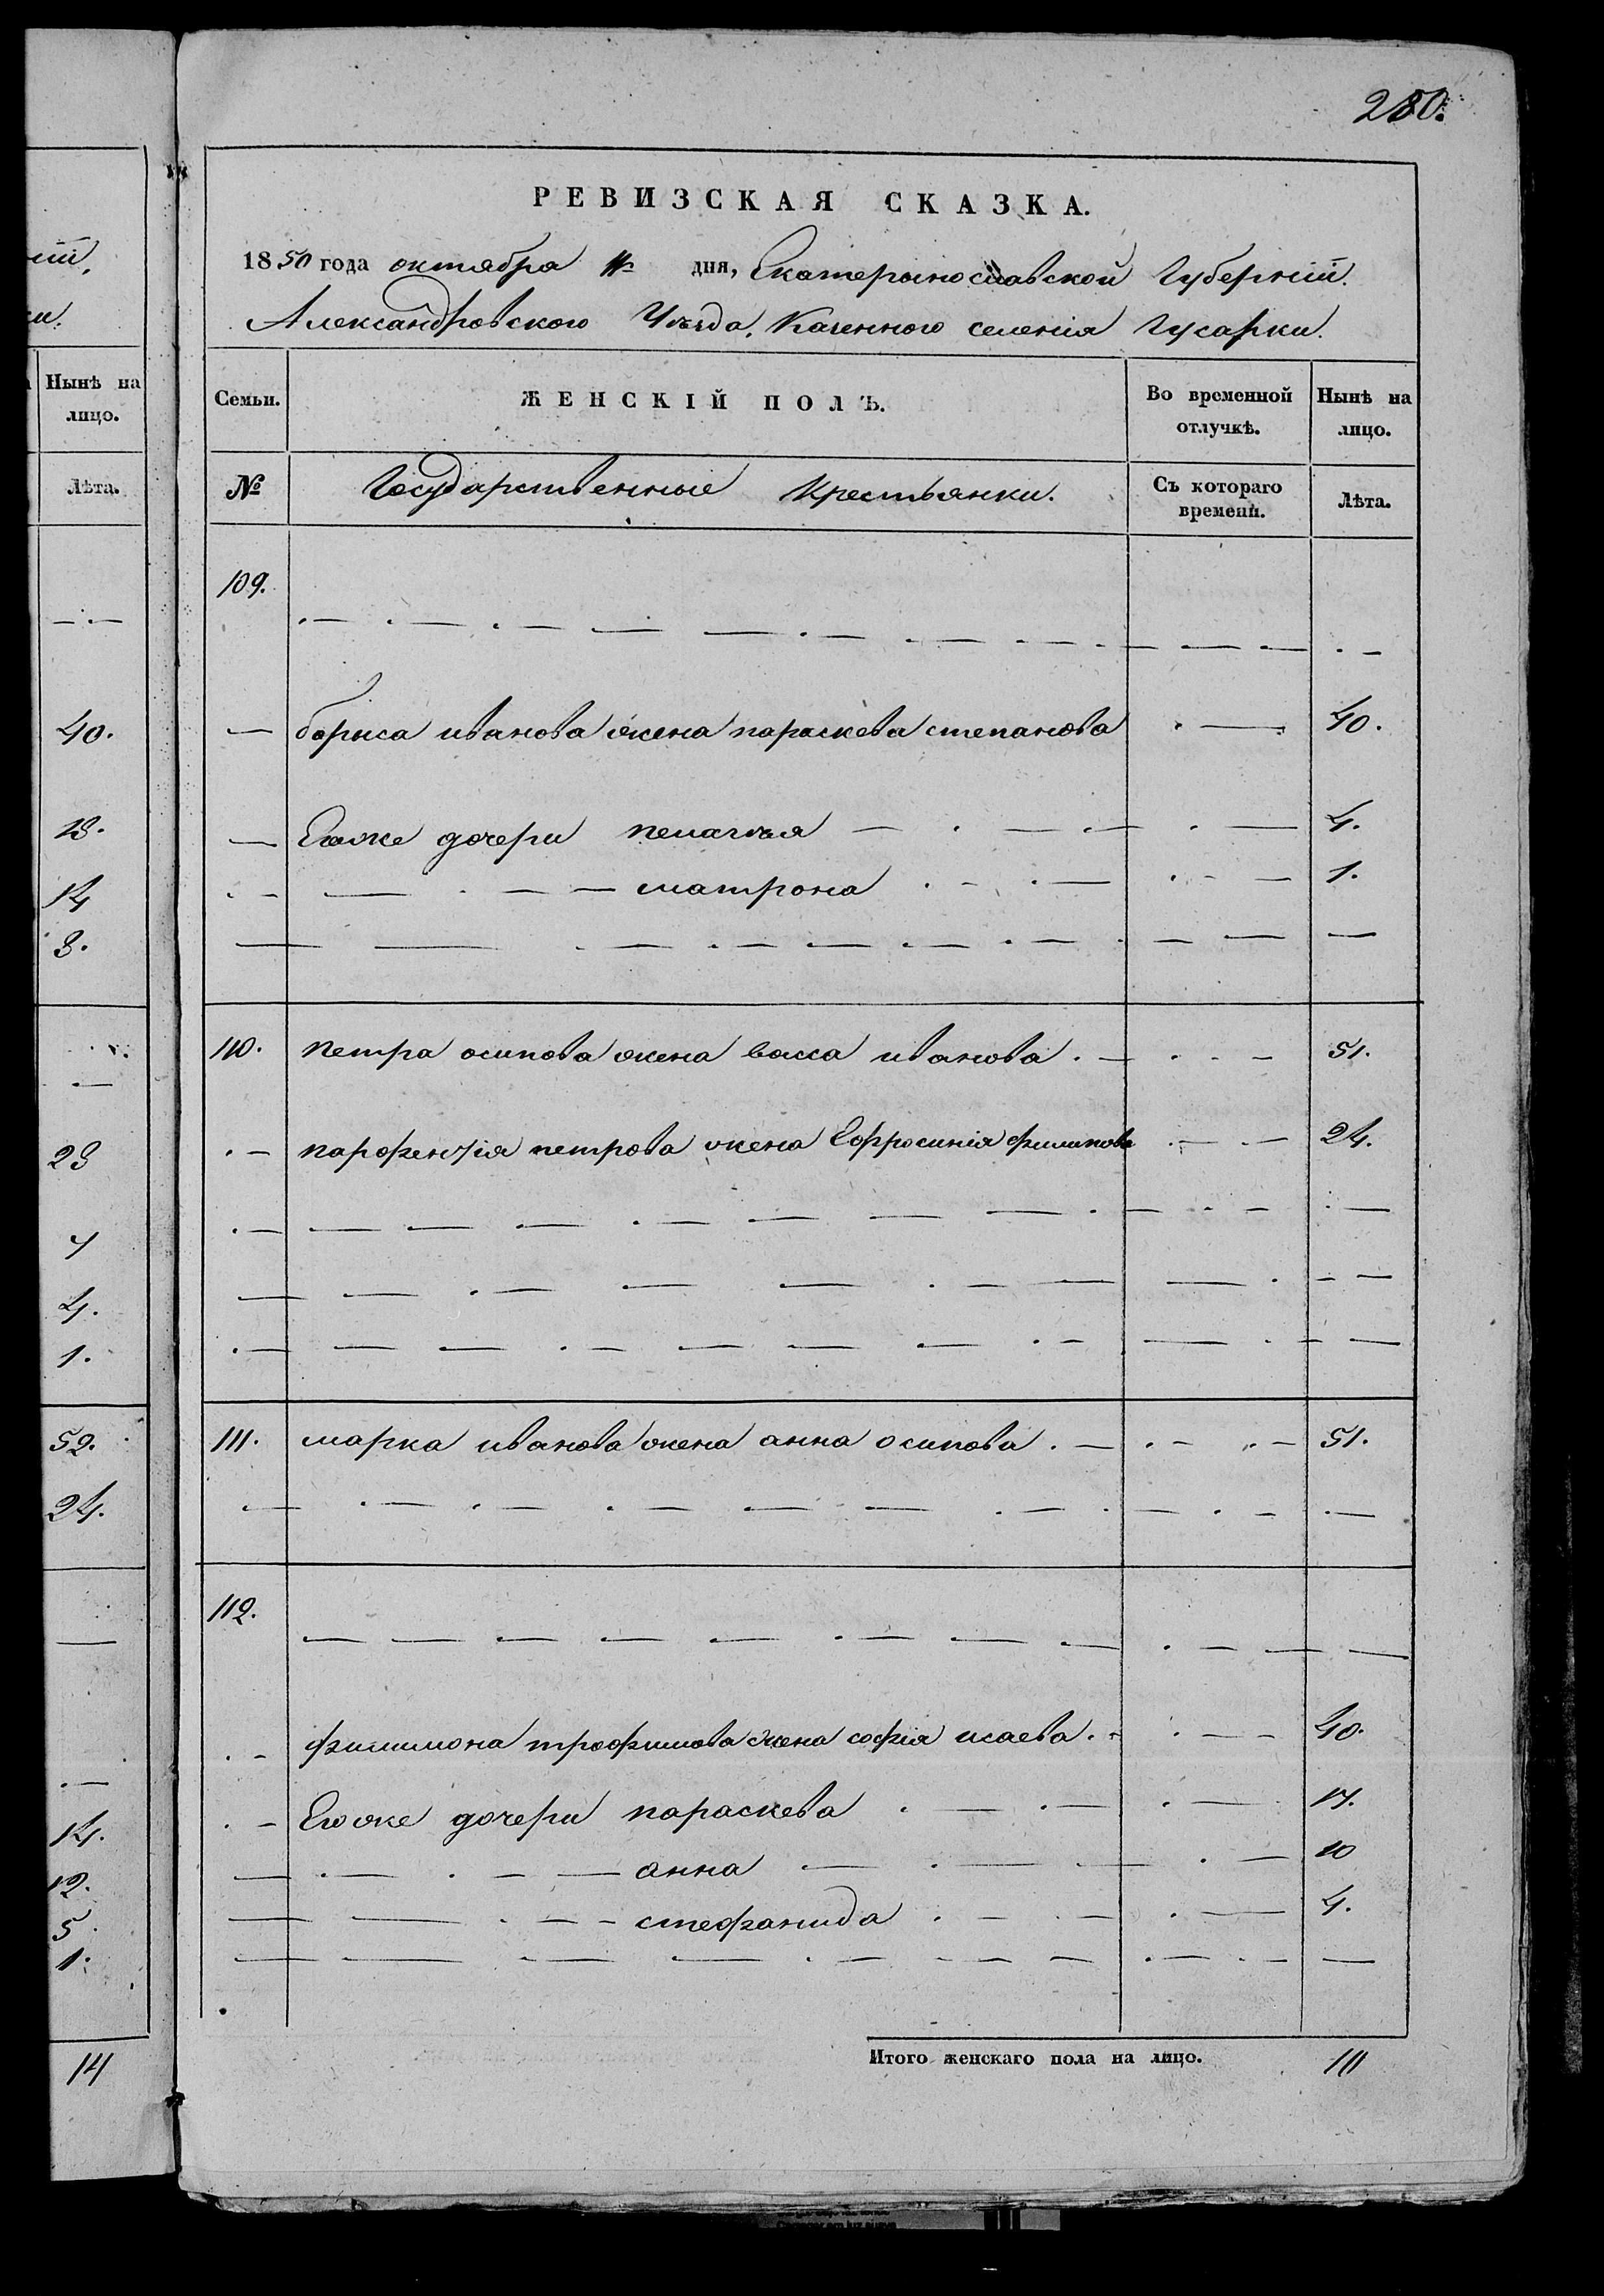 280.
РЕВИЗСКАЯ СКАЗКА.
1850 года октября дня, Екатериославской Губерніи.
Александровского Уѣзда, Казенного селенія Гусарки.
Семьи. ЖЕНСКІЙ ПОЛЪ. Во временной отлучкѣ. Нынѣ на лицо.
№ Государственные Крестьянки. Съ котораго времени. Лѣта.
109.
— бориса иванова жена параскева степанова 40.
— Егоже дочери пелагѣя 4.
матрона 1.
110. петра осипова жена васса иванова 51.
парфентія петрова жена Ефросинія филипова 24.
111. марка иванова жена анна осипова 51.
112.
филимона трофимова жена софія исаева 40.
Егоже дочери параскева
анна 10
стефанида 4.
Итого женскаго пола на лицо. 10
Нынѣ на лицо.
Лѣта.
40.
14
8.
23
4.
1.
52.
24.
14.
12.
5
1.
14